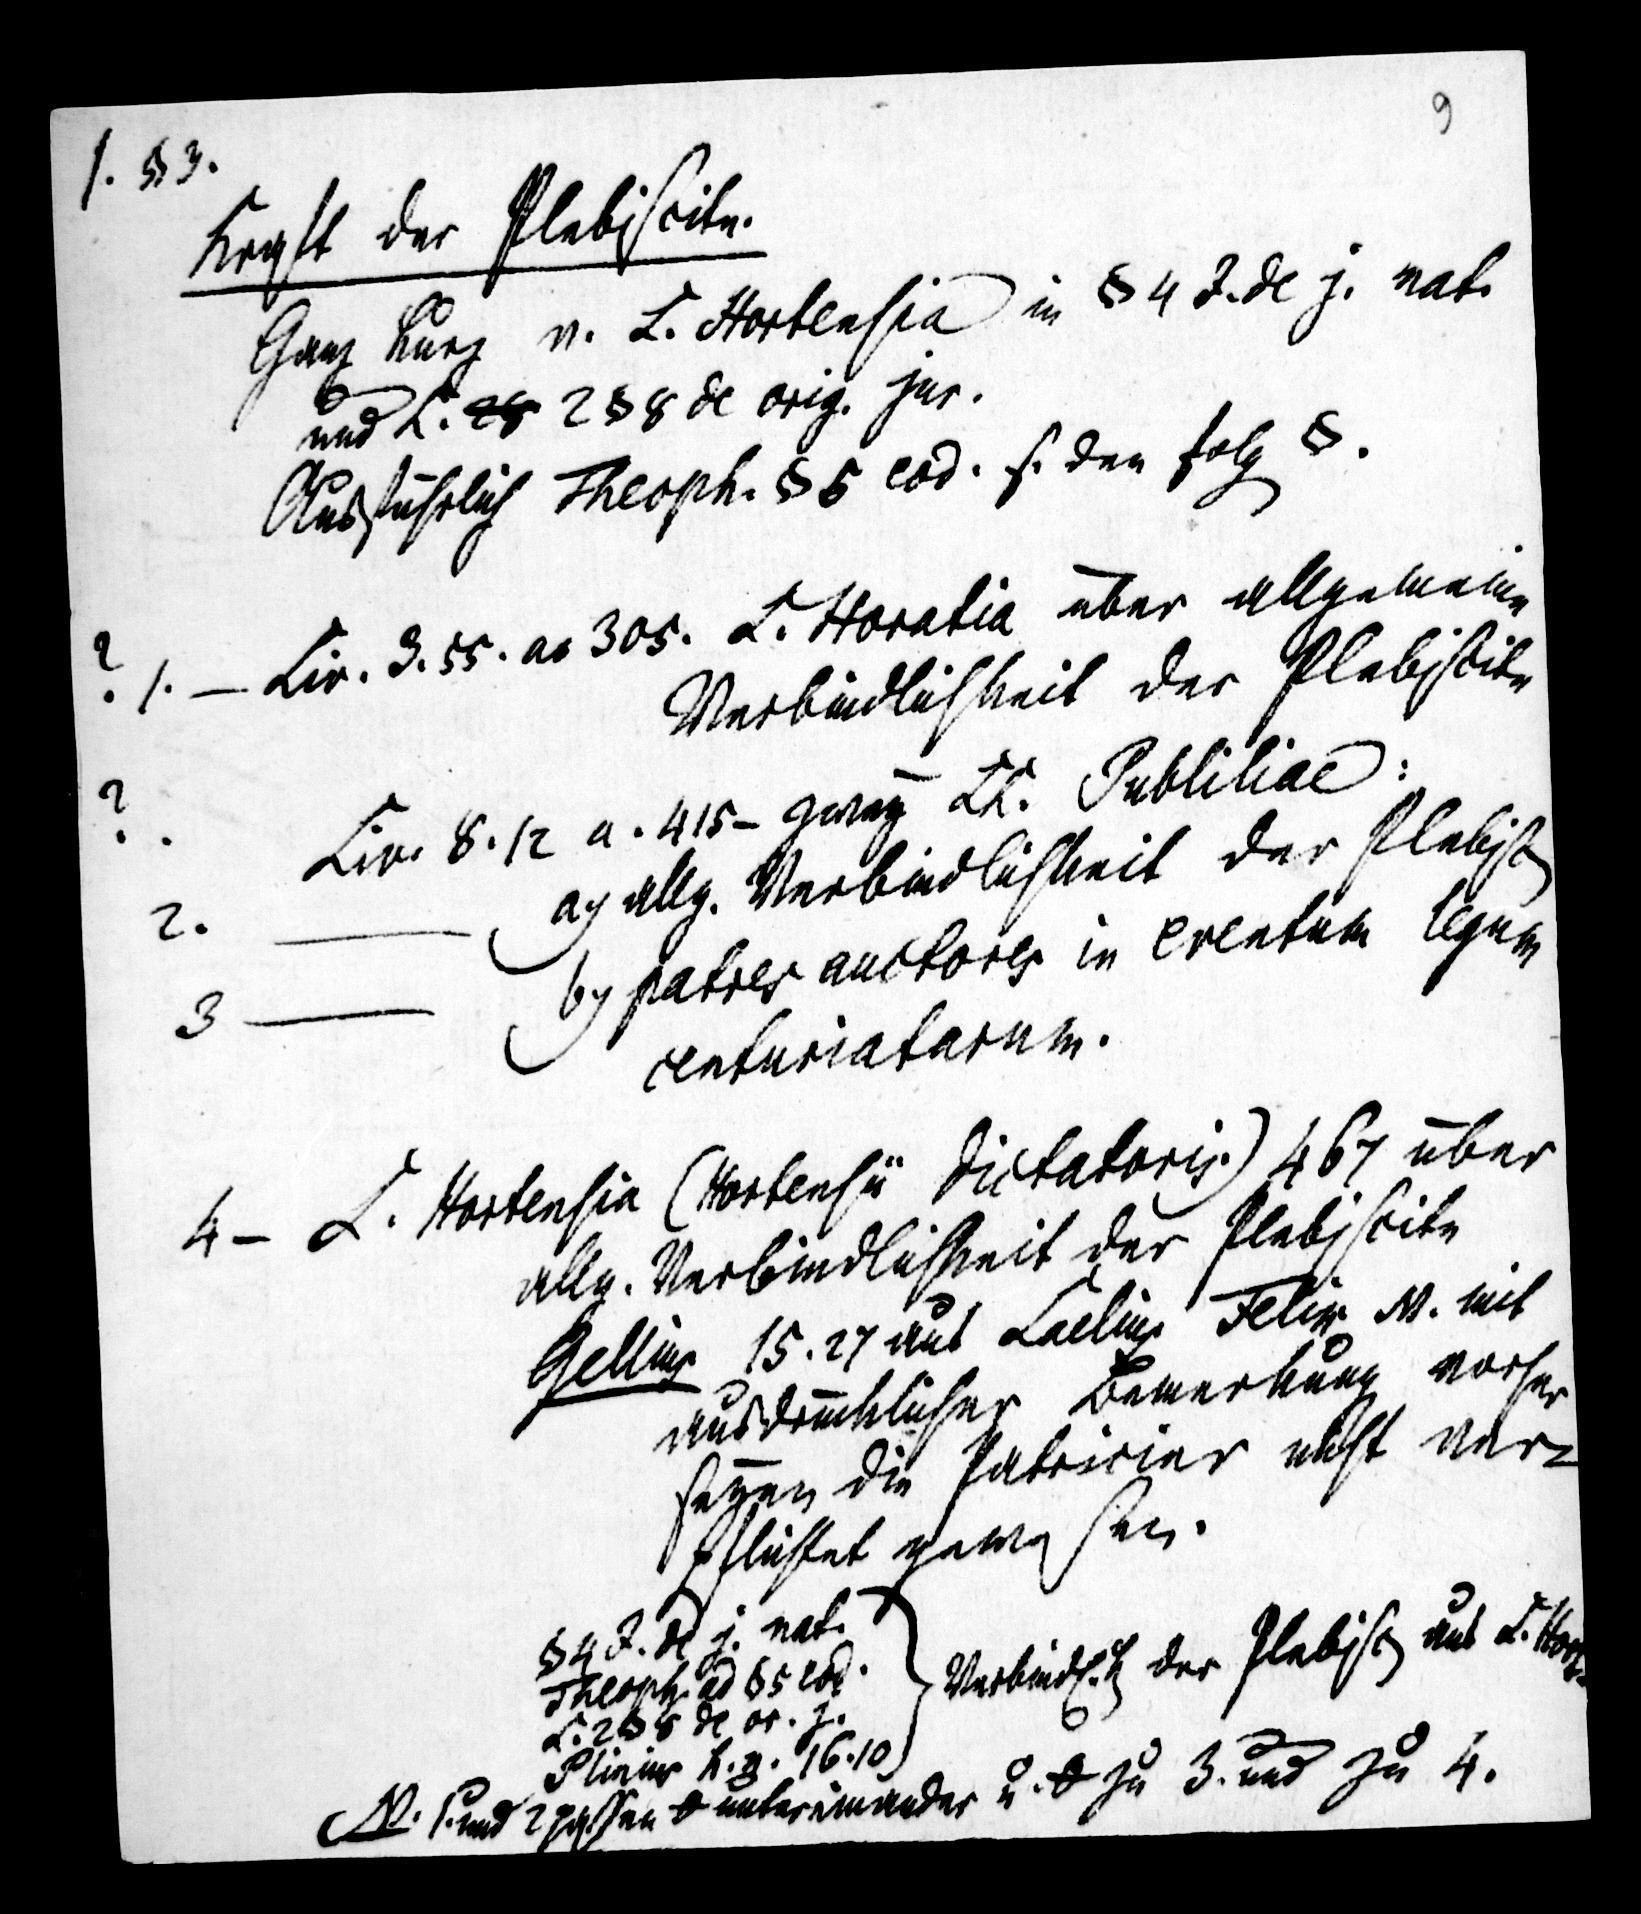 9
1. § 3.
Kraft der Plebiscite.
Ganz kurz v. L. Hortensia in § 4 J. de j. nat.
und L. 28 2 § 8 de orig. jur.
Ausführlich Theoph. § 5 eod. s. den folg §.
? 1. — Liv. 3.55. aº 305. L. Horatia über allgemeine
Verbindlichkeit der Plebiscite
? . Liv. 8.12 a. 415 – zwey LL. Publiliae:
2. — a) allg. Verbindlichkeit der Plebisc
3 — b) patres auctores in eventum legum
centuriatarum.
4 – L. Hortensia (Hortensii Dictatoris) 467 über
allg. Verbindlichkeit der Plebiscite
Gellius 15.27 aus Laelius Felix N. mit
ausdrücklicher Bemerkung vorher
seyen die Patricier nicht ver=
pflichtet gewesen.
§ 4 J. de j. nat.
Theoph. ad § 5 eod.
L. 2 § 8 de or. j.
Plinius h. n. 16.10
Verbindl.k der Plebisc aus L. Hort.
N. 1. und 2 passen untereinander u. zu 3. und zu 4.